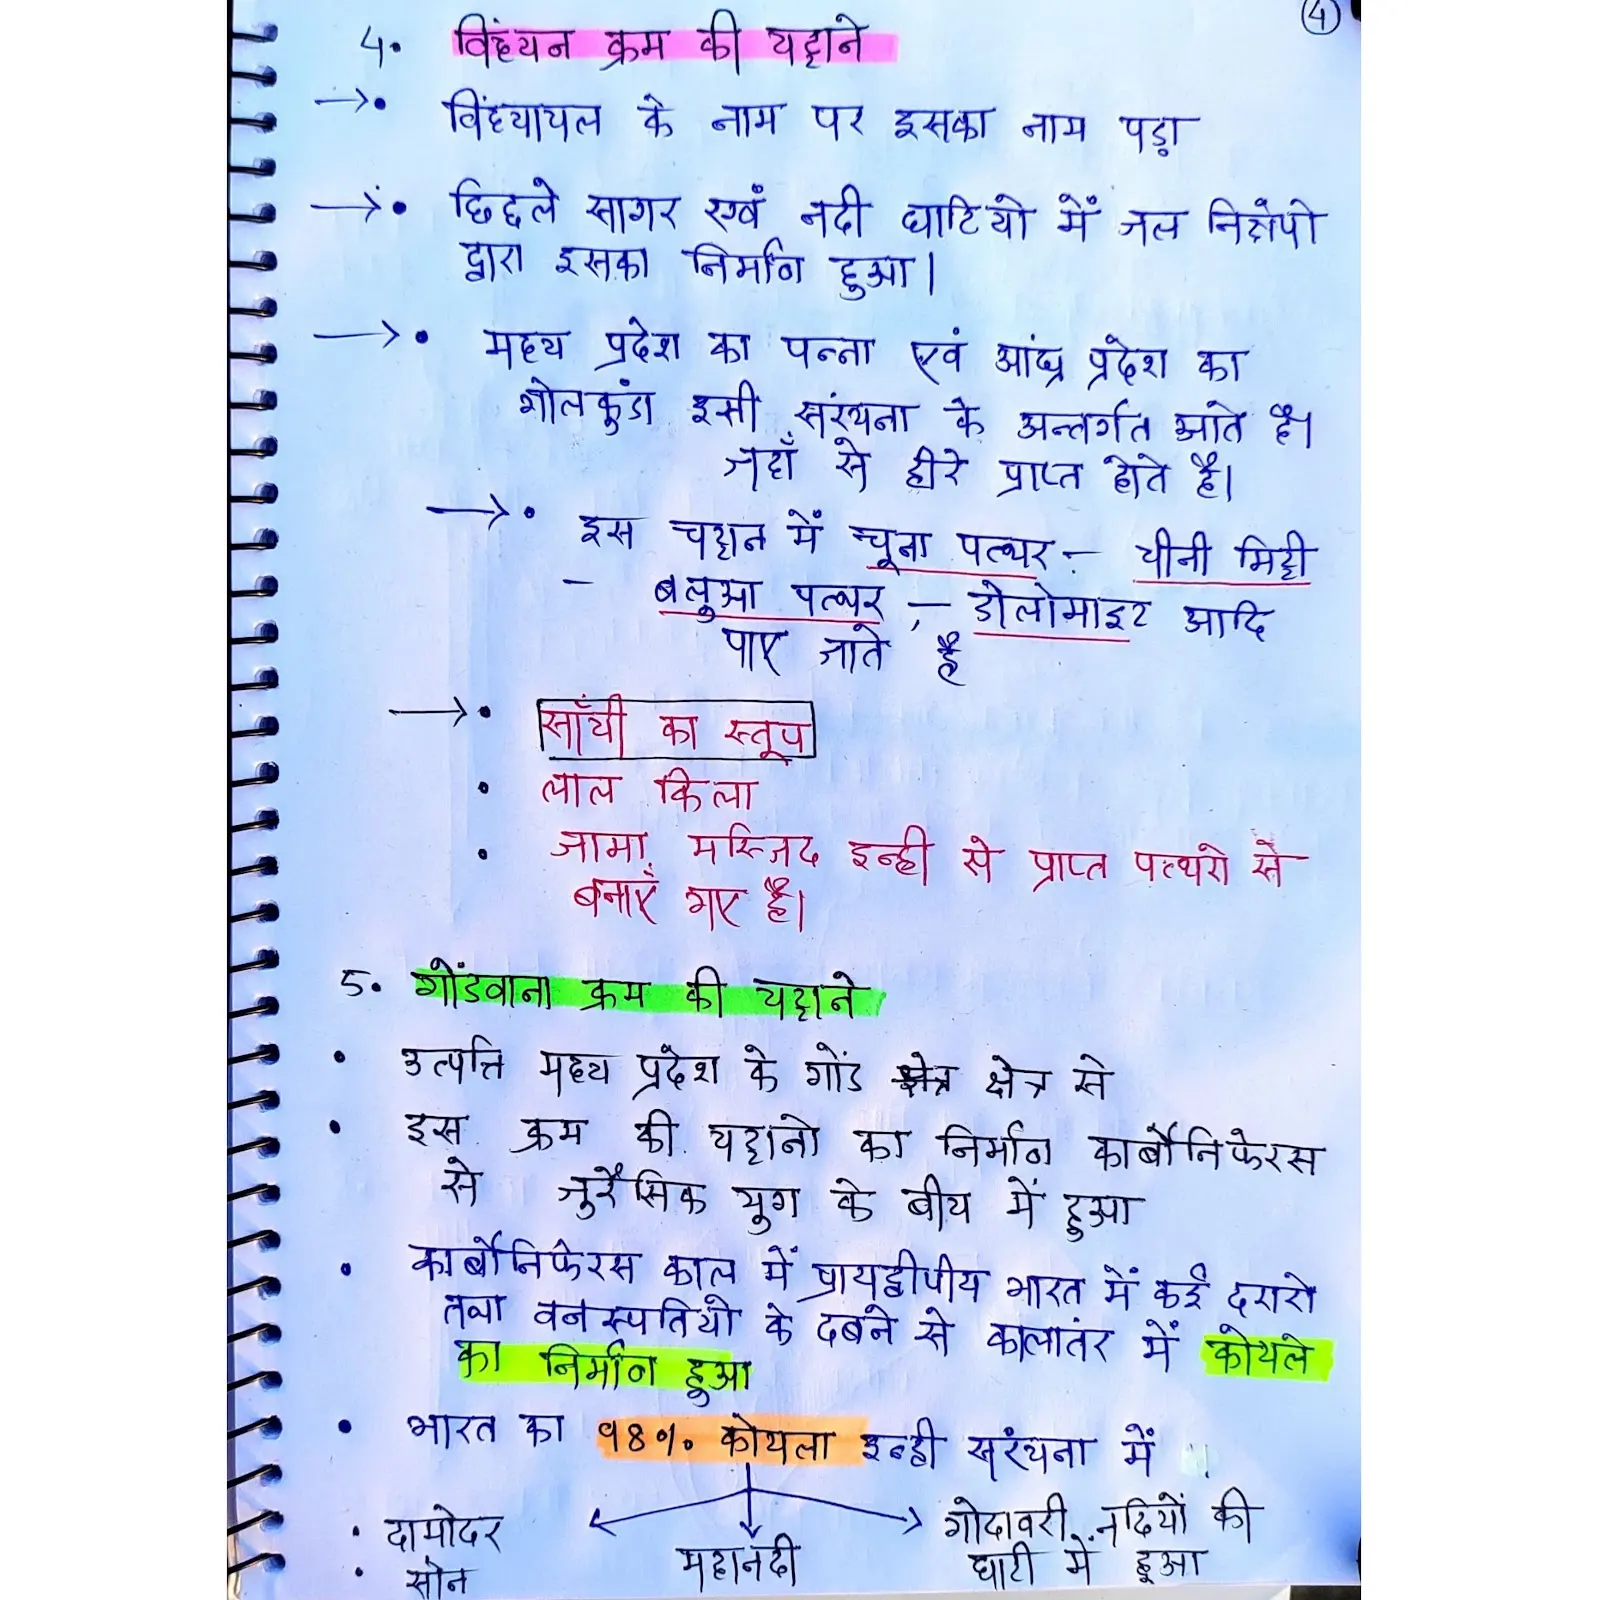 4
4. विंध्यन क्रम की चट्टाने
→• विंध्याचल के नाम पर इसका नाम पड़ा
→• छिछले सागर एवं नदी घाटियो में जल निक्षेपो
द्वारा इसका निर्माण हुआ।
→• मध्य प्रदेश का पन्ना एवं आंध्र प्रदेश का
गोलकुंडा इसी संरचना के अन्तर्गत आते है।
जहाँ से हीरे प्राप्त होते है।
→• इस चट्टान में चूना पत्थर - चीनी मिट्टी
- बलुआ पत्थर, - डोलोमाइट आदि
पाए जाते है
→• साँची का स्तूप
• लाल किला
• जामा मस्जिद इन्ही से प्राप्त पत्थरो से
बनाएँ गए है।
5. गोंडवाना क्रम की चट्टाने
• उत्पत्ति मध्य प्रदेश के गोंड क्षेत्र से
• इस क्रम की चट्टानो का निर्माण कार्बोनिफेरस
से जुरैसिक युग के बीच में हुआ
• कार्बोनिफेरस काल में प्रायद्वीपीय भारत में कई दरारो
तथा वनस्पतियो के दबने से कालातंर में कोयले
का निर्माण हुआ
• भारत का 98% कोयला इन्ही संरचना में
• दामोदर
• सोन
महानदी
गोदावरी नदियों की
घाटी में हुआ